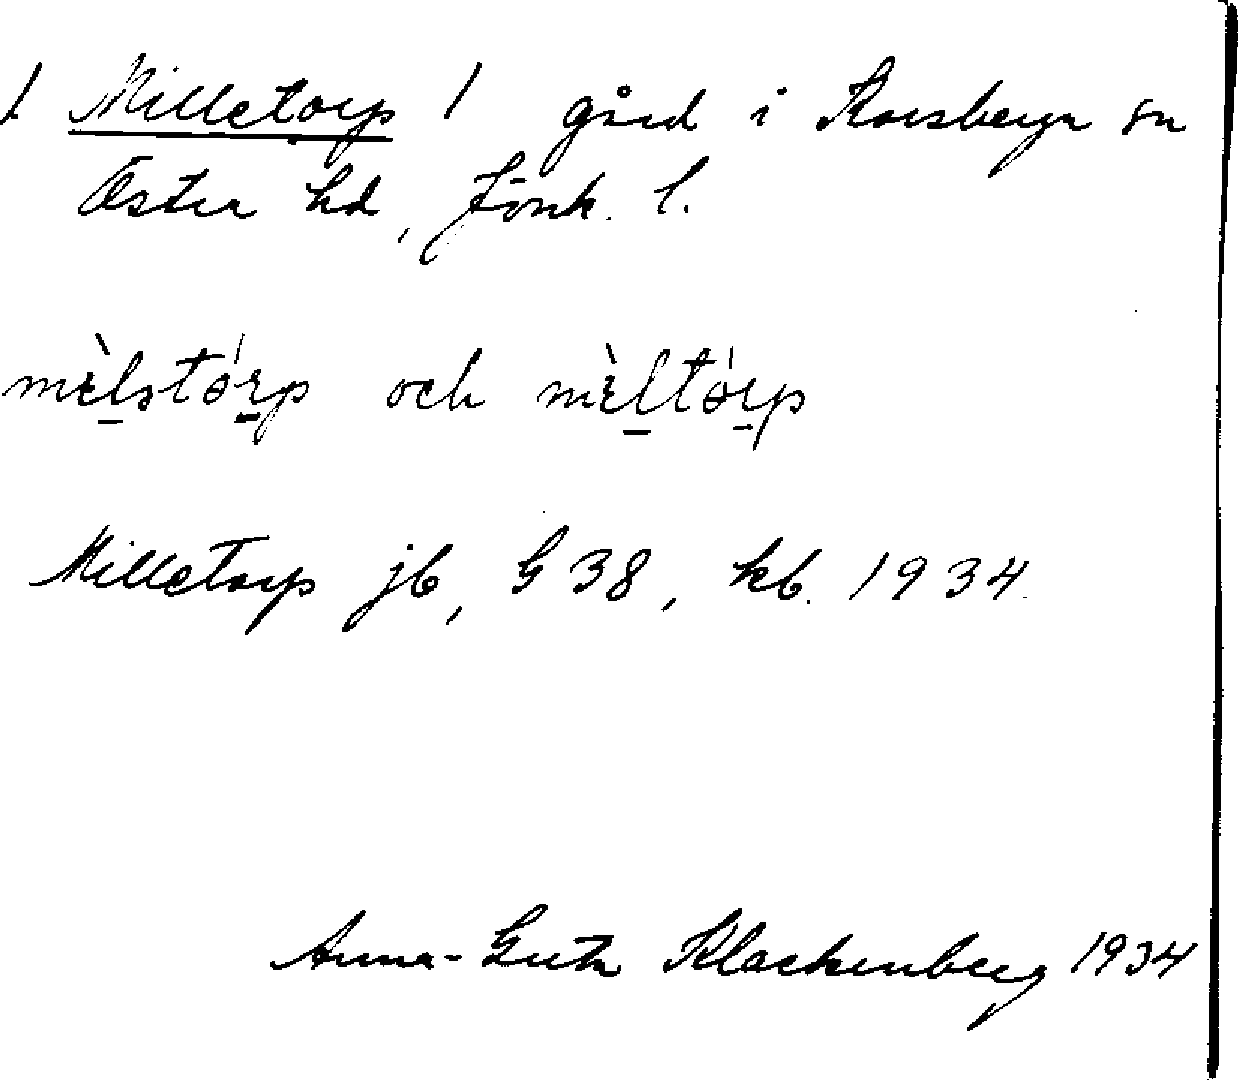 / Milletorp / gård i Korsberga sn
Öster hd, Jönk. l.
mèlstórp och mèltórp
Milletorp jb, G 38, kb. 1934.
Anna-Greta Klackenberg 1934